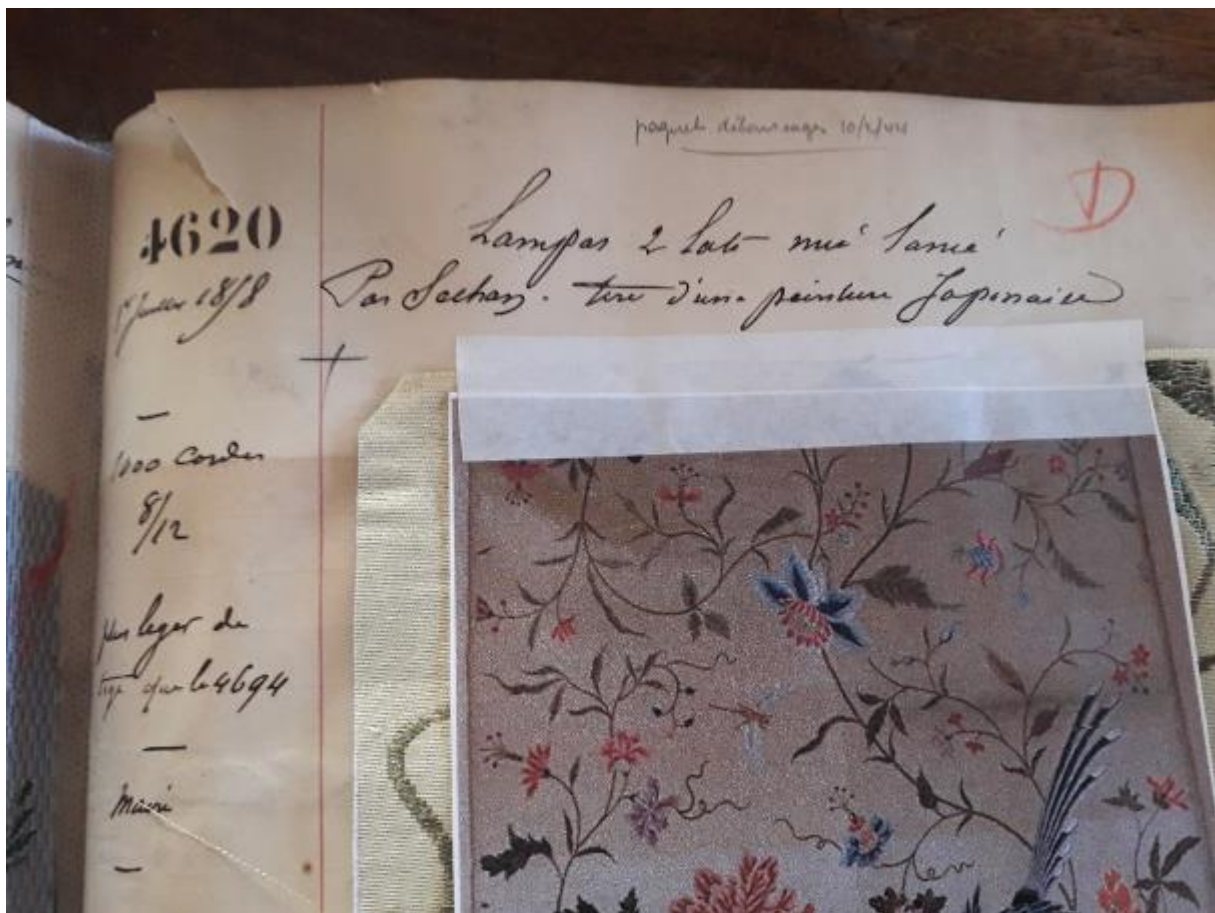 paquet déboursages 10/2/44
D
4620
Juillet 1878
Lampas 2 lats nué lamé
Par Sechan. tiré d'une peinture Japonaise
1000 cordes
8/12
plus leger de
tige que le 4694